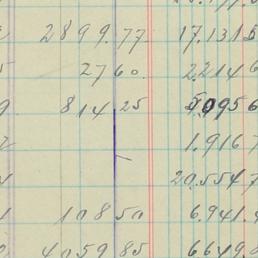 2899.77 17.1315
2760. 2.2146
814 25 5.0956
1.9167
20.5547
10850 6.941.
4059 85 6649.